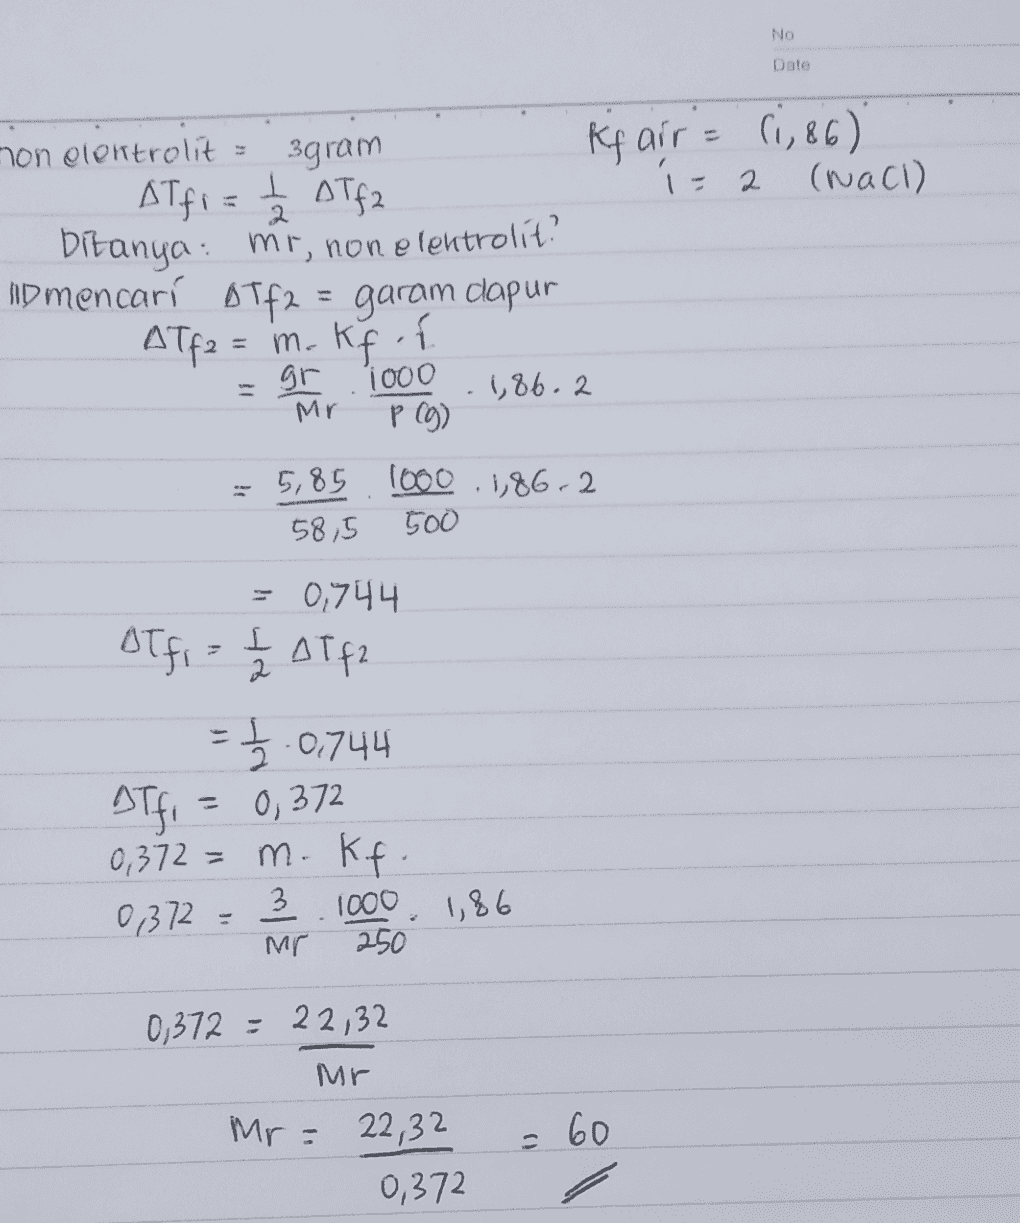 No
Date
non elentrolit = 3gram Kf air = (1,86)
ΔTf1 = 1/2 ΔTf2 i = 2 (NaCl)
Ditanya: mr, non elektrolit?
mencari ΔTf2 = garam dapur
ΔTf2 = m. Kf . i
= gr/Mr . 1000/P (g) . 1,86. 2
= 5,85/58,5 . 1000/500 . 1,86. 2
= 0,744
ΔTf1 = 1/2 ΔTf2
= 1/2 . 0,744
ΔTf1 = 0,372
0,372 = m. Kf.
0,372 = 3/Mr . 1000/250 . 1,86
0,372 = 22,32/Mr
Mr = 22,32/0,372 = 60